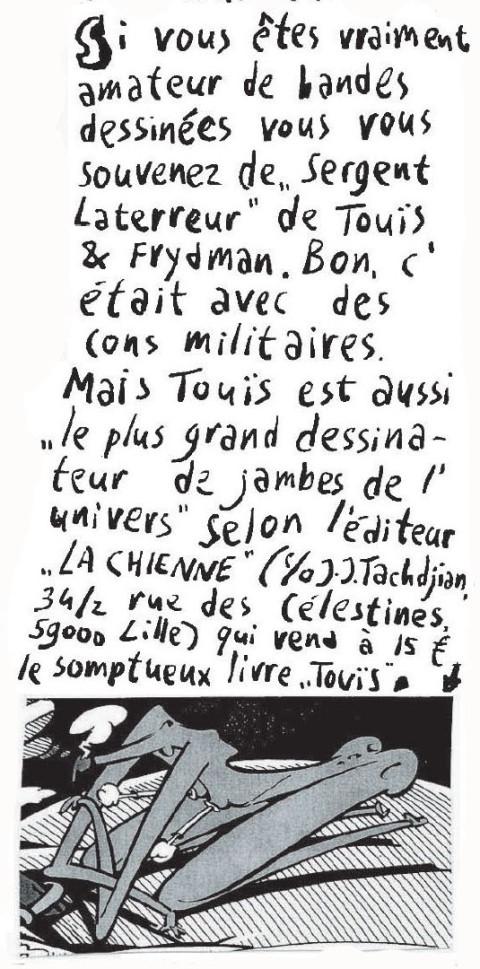 Si vous êtes vraiment
amateur de bandes
dessinées vous vous
souvenez de „ Sergent
Laterreur" de Touïs
& Frydman. Bon, c'
était avec des
cons militaires.
Mais Touïs est aussi
„le plus grand dessina-
teur de jambes de l'
univers" selon l'éditeur
„LA CHIENNE" (c/o J.J. Tachdjian,
34/2 rue des Célestines,
59000 Lille) qui vend à 15 €
le somptueux livre „Touïs".